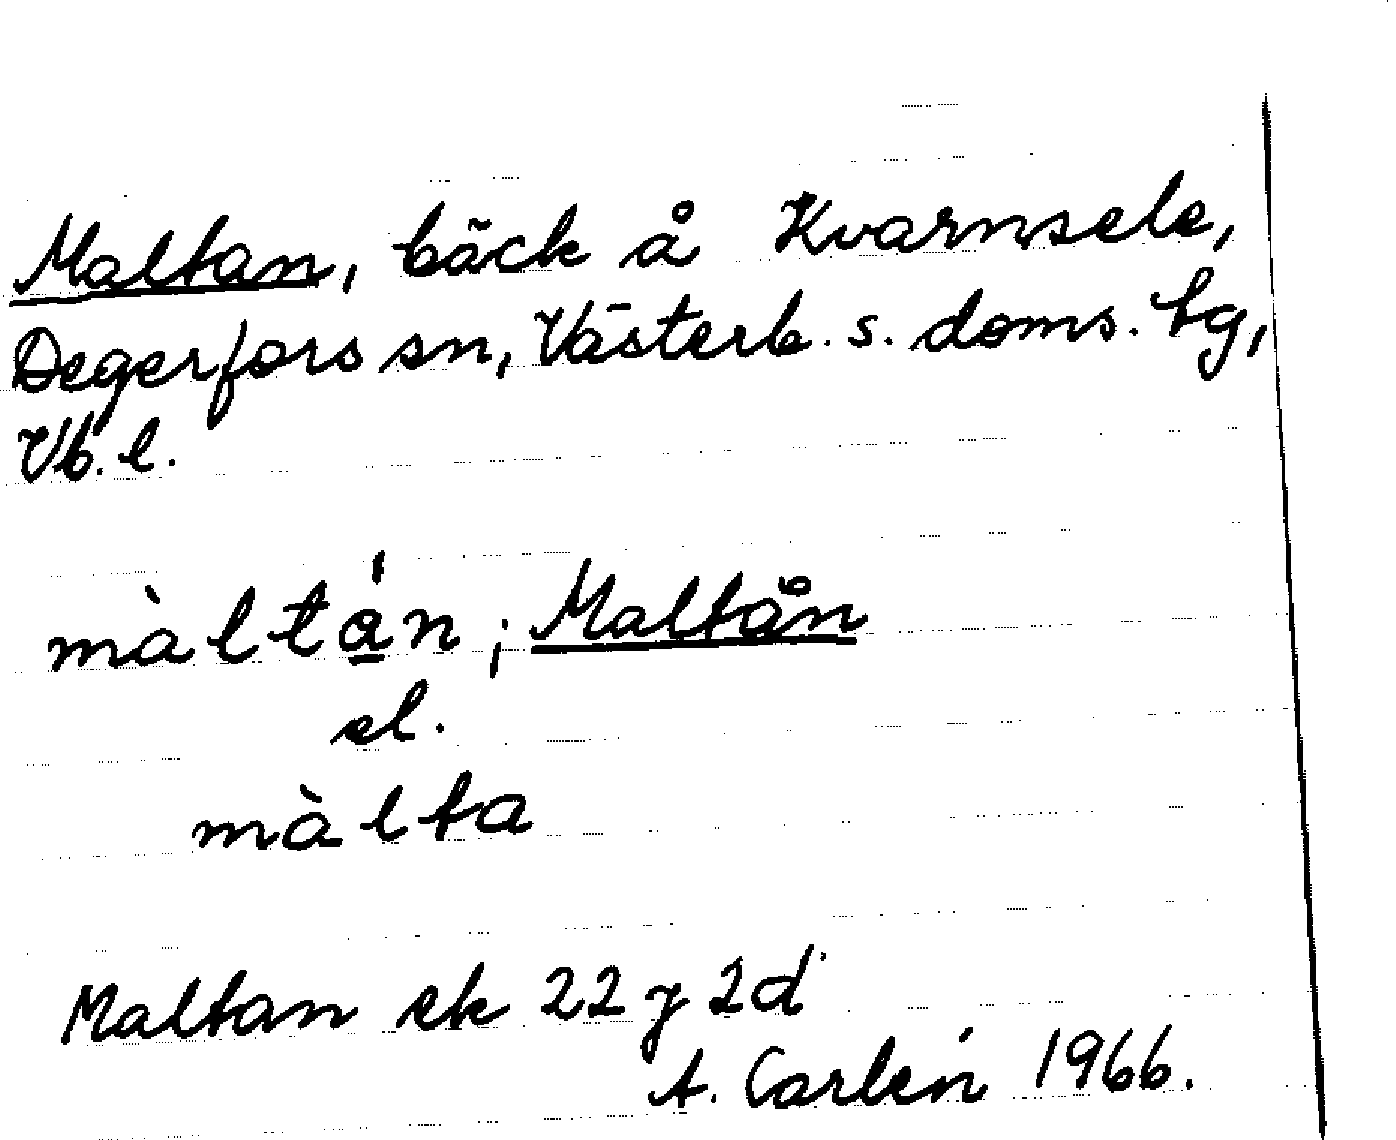 Maltan, bäck å Kvarnsele,
Degerfors sn, Västerb. s. doms. tg,
Vb. l.
màltа̱́n ; Maltån
el.
màlta
Maltan ek 22 J 2d
A. Carlén 1966.